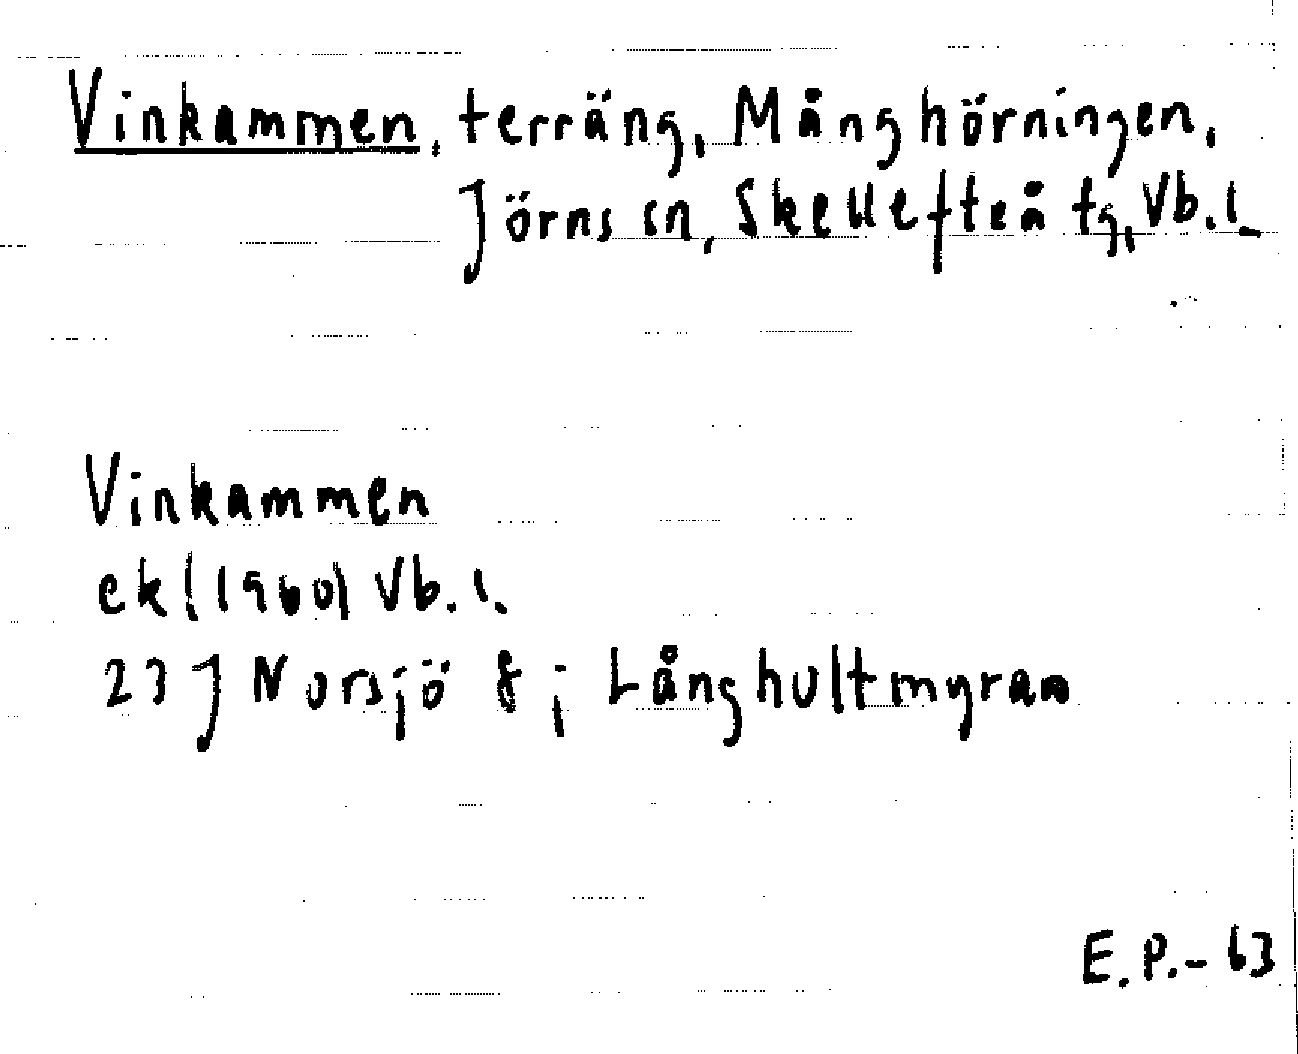 Vinkammen, terräng, Månghörningen,
Jörns sn, Skellefteå tg, Vb. l.
Vinkammen
ek (1960) Vb. l.
23 J Norsjö 8 j Långhultmyran
E. P. - 63